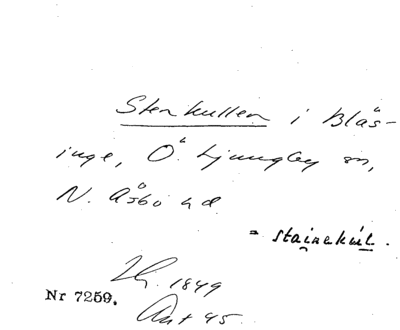 Stenkullen i Blås-
inge, Ö. Ljungby sn,
N. Åsbo hd.
= staine
1849
Nr 7259.